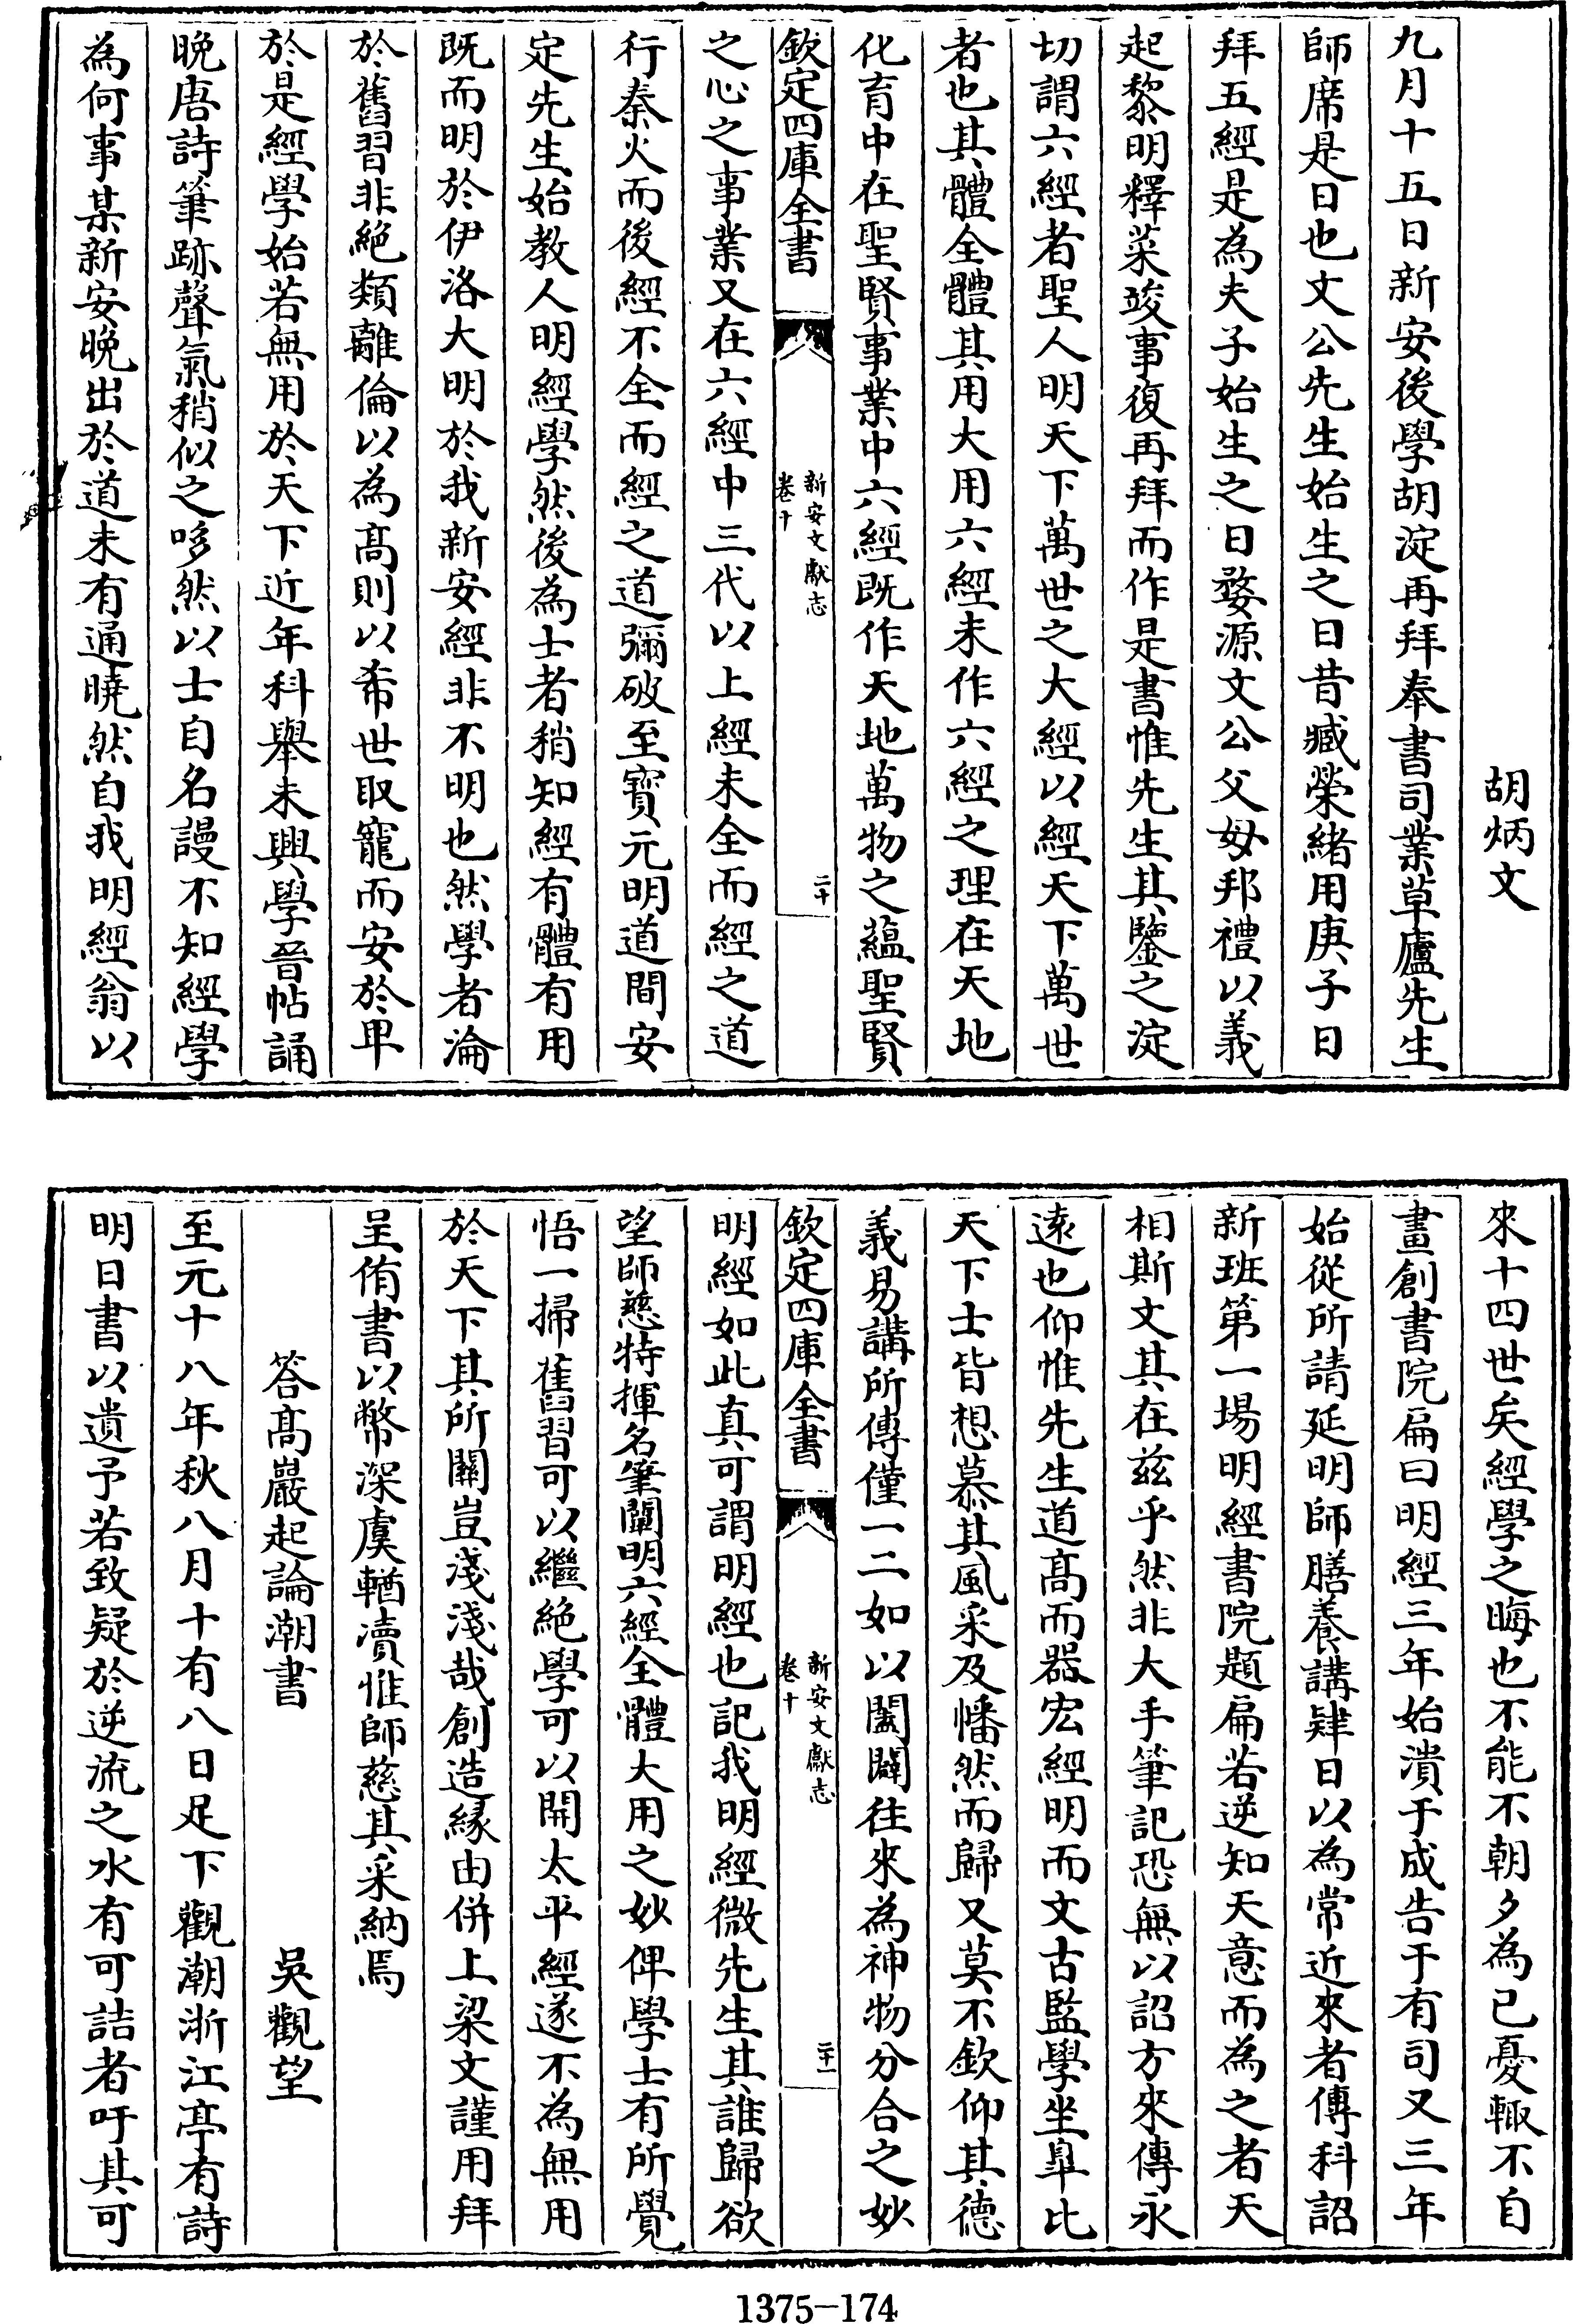 胡炳文
九月十五日新安後學胡淀再拜奉書司業草廬先生
師席是日也文公先生始生之日昔臧榮緒用庚子日
拜五經是為夫子始生之日婺源文公父母邦禮以義
起黎明釋菜竣事復再拜而作是書惟先生其鑒之淀
切謂六經者聖人明天下萬世之大經以經天下萬世
者也其體全體其用大用六經未作六經之理在天地
化育中在聖賢事業中六經既作天地萬物之蘊聖賢
欽定四庫全書
新安文獻志
卷十
二十
之心之事業又在六經中三代以上經未全而經之道
行秦火而後經不全而經之道彌破至寳元明道間安
定先生始教人明經學然後為士者稍知經有體有用
既而明於伊洛大明於我新安經非不明也然學者淪
於舊習非絶類離倫以為髙則以希世取寵而安於卑
於是經學始若無用於天下近年科舉未興學晉帖誦
晩唐詩筆跡聲氣稍似之哆然以士自名謾不知經學
為何事某新安晩出於道未有通曉然自我明經翁以
來十四世矣經學之晦也不能不朝夕為已憂輙不自
畫創書院扁曰明經三年始潰于成告于有司又三年
始從所請延明師膳養講肄日以為常近來者傳科詔
新班第一場明經書院題扁若逆知天意而為之者天
相斯文其在兹乎然非大手筆記恐無以詔方來傳永
逺也仰惟先生道髙而器宏經明而文古監學坐臯比
天下士皆想慕其風采及幡然而歸又莫不欽仰其德
義易講所傳僅一二如以闔闢往來為神物分合之妙
欽定四庫全書
新安文獻志
卷十
二十一
明經如此真可謂明經也記我明經微先生其誰歸欲
望師慈特揮名筆闡明六經全體大用之妙俾學士有所覺
悟一掃舊習可以繼絶學可以開太平經遂不為無用
於天下其所關豈淺淺哉創造縁由併上梁文謹用拜
呈侑書以幣深虞輶瀆惟師慈其采納焉
答髙巖起論潮書　吳觀望
至元十八年秋八月十有八日足下觀潮浙江亭有詩
明日書以遺予若致疑於逆流之水有可詰者吁其可
1375-174